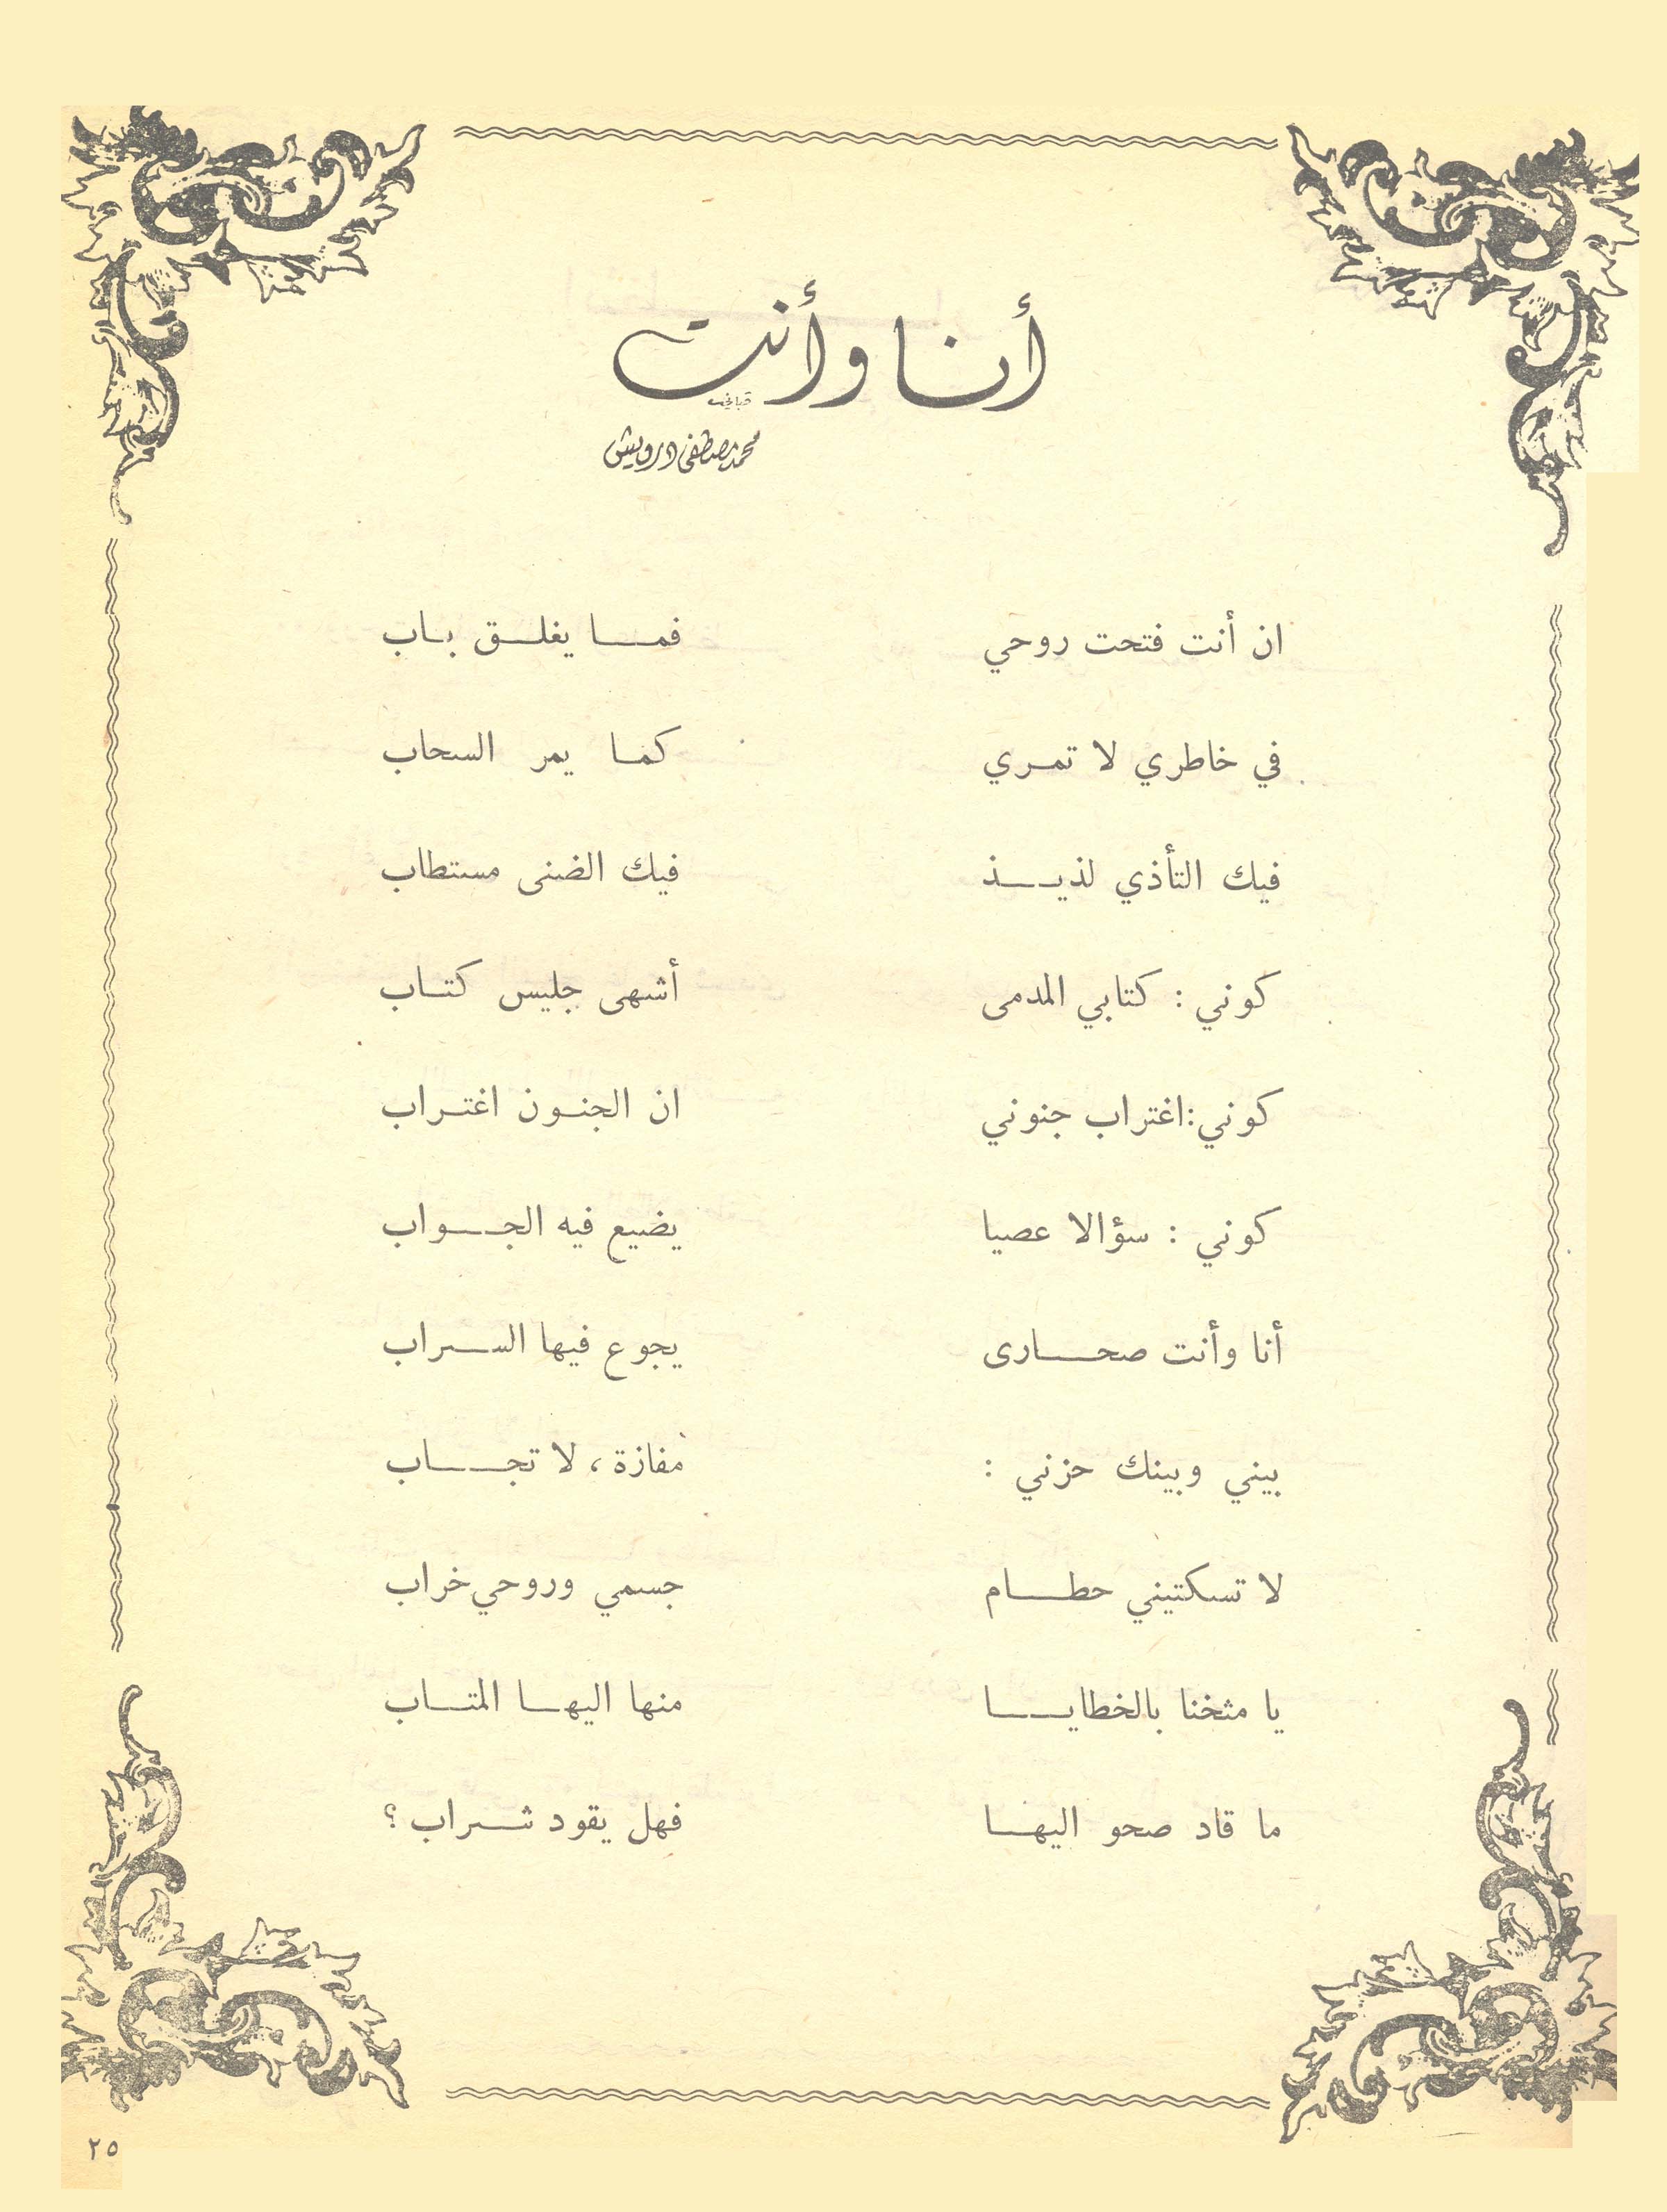 أنا وأنت
محمد مصطفى درويش
ان أنت فتحت روحي فما يغلق باب
في خاطري لا تمري كما يمر السحاب
فيك التأذي لذيذ فيك الضنى مستطاب
كوني : كتابي المدمى أشهى جليس كتاب
كوني :اغتراب جنوني ان الجنون اغتراب
كوني : سؤالا عصيا يضيع فيه الجواب
أنا وأنت صحارى يجوع فيها السراب
بيني وبينك حزني : مفازة ، لا تجاب
لا تسكتيني حطام جسمي وروحي خراب
يا مثخنا بالخطايا منها اليها المتاب
ما قاد صحو اليها فهل يقود شراب ؟
٢٥